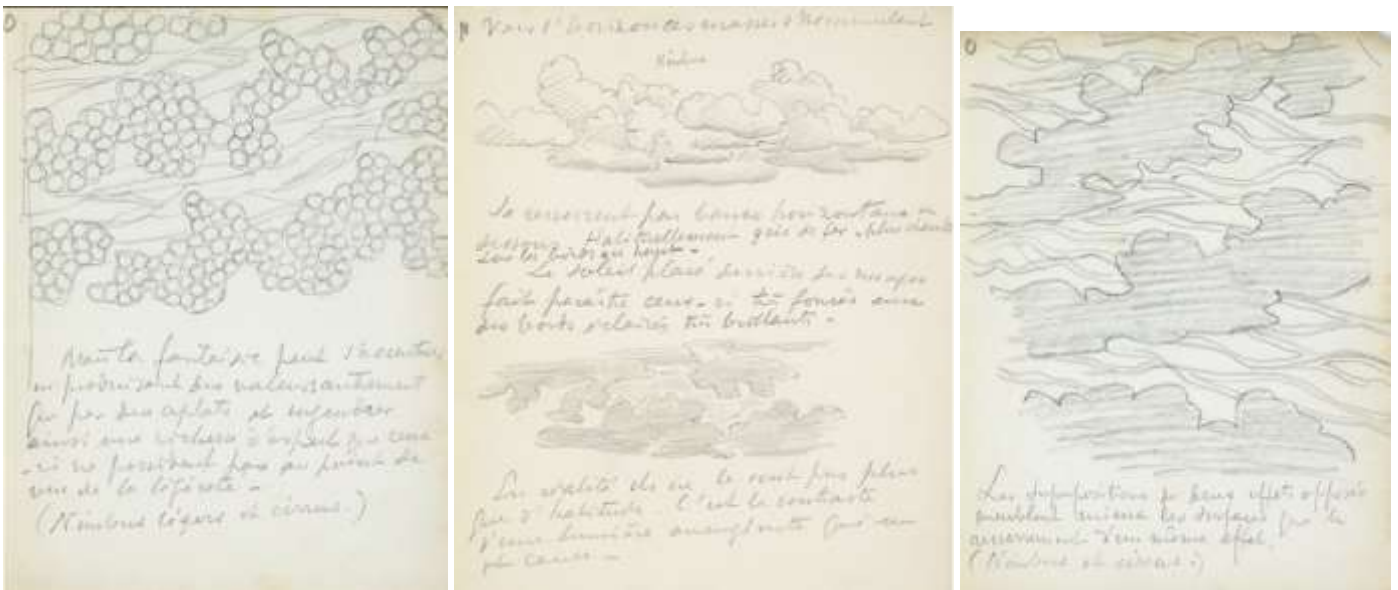 Mais la fantaisie peut s'accentuer
en produisant des valeurs autrement
que par des aplats et engendrer
ainsi une richesse d'aspect que ceux
-ci ne possèdent pas au point de
vue de la légèreté -
(Nimbus légers et cirrus.)
Vers l'horizon ces masses s'accumulent
Nimbus
Se resserrent par bancs horizontaux en
dessous. Habituellement gris de fer, plus clairs
sur les bords du haut -
Le soleil placé derrière des nuages
fait paraître ceux-ci très foncés avec
des bords éclairés très brillants -
En réalité ils ne le sont pas plus
que d'habitude. C'est le contraste
d'une lumière aveuglante qui en
est cause -
Les superpositions de deux effets opposés
meublent mieux les surfaces que le
d'un même effet.
(Nimbus et cirrus.)